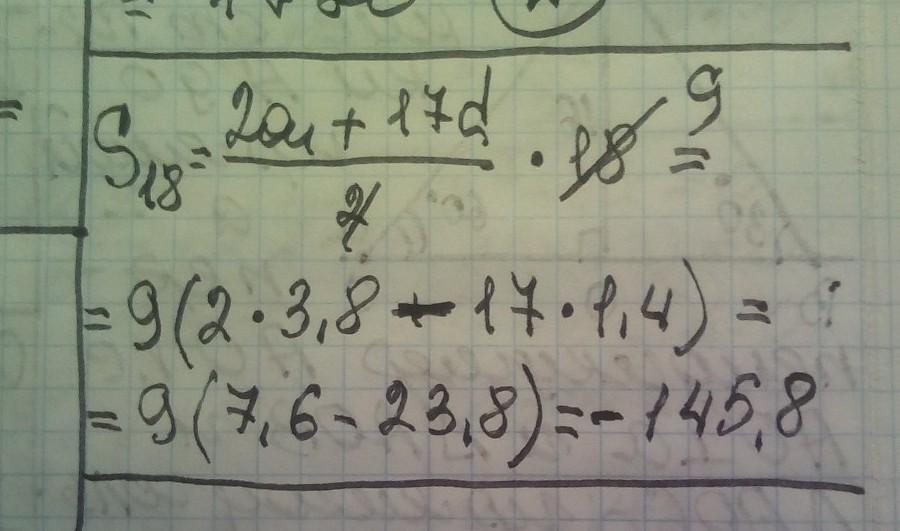 S₁₈ = (2a₁ + 17d)/2 · 18 9 =
= 9(2 · 3,8 - 17 · 1,4) =
= 9(7,6 - 23,8) = - 145,8